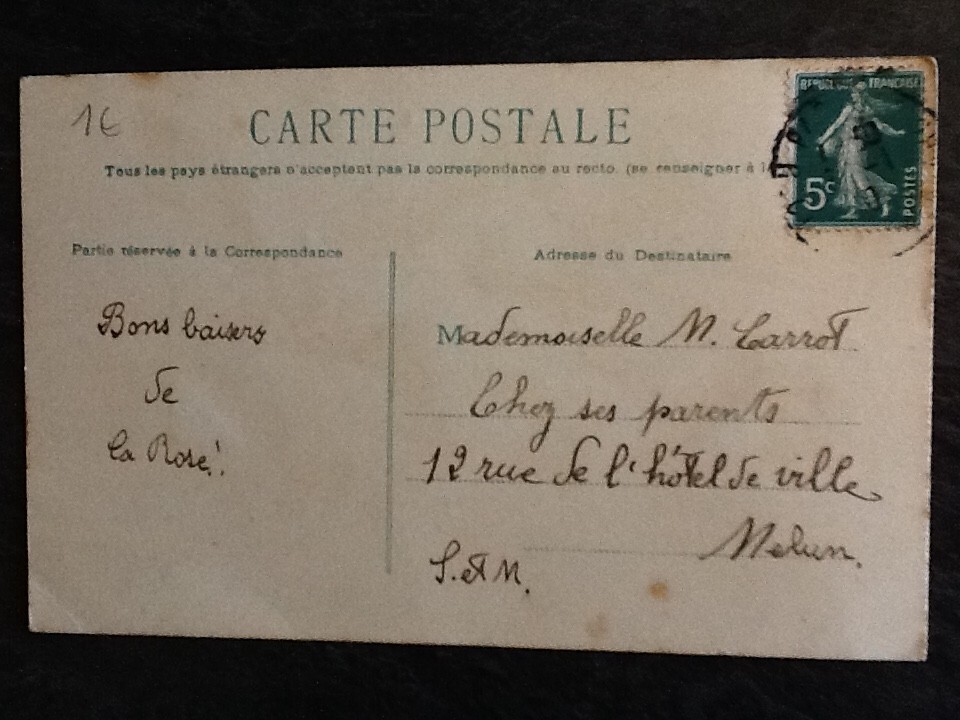 1€
CARTE POSTALE
Tous les pays étrangers n'acceptent pas la correspondance au recto. (se renseigner à la
REPUBLIQUE FRANÇAISE
5c
POSTES
Partie réservée à la Correspondance
Adresse du Destinataire
Bons baisers
de
la Rose!.
Mademoiselle M. Carrot
Chez ses parents
12 rue de l'hôtel de ville
Melun.
S. et M.